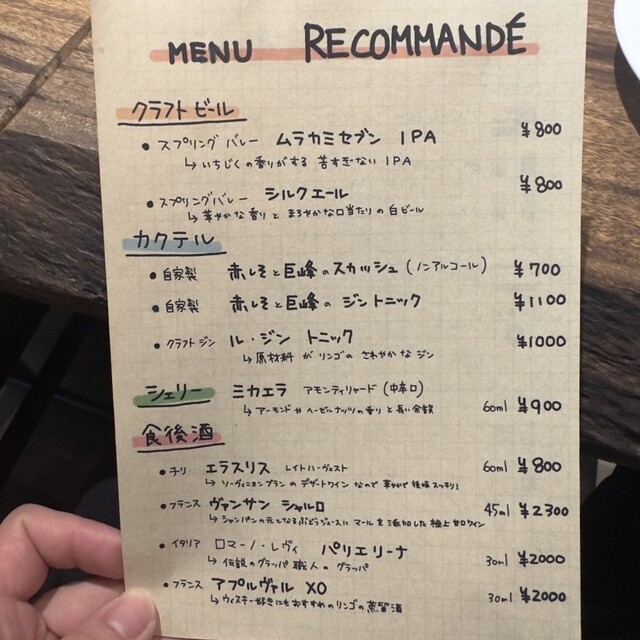 MENU RECOMMANDÉ
クラフトビール
• スプリングバレー ムラカミセブン IPA ¥800
↳ いちじくの香りがする 苦すぎない IPA
• スプリングバレー シルクエール ¥800
↳ 華やかな香りと まろやかな口当たりの白ビール
カクテル
• 自家製 赤しそと巨峰のスカッシュ (ノンアルコール) ¥700
• 自家製 赤しそと巨峰の ジントニック ¥1100
• クラフトジン ル・ジン トニック ¥1000
↳ 原材料 が リンゴの さわやかな ジン
シェリー ミカエラ アモンティリャード (中辛口)
↳ アーモンドやヘーゼルナッツの香りと長い余韻 60ml ¥900
食後酒
• チリ エラスリス レイトハーヴェスト 60ml ¥800
↳ ソーヴィニヨンブランの デザートワイン なので 華やかで 後味スッキリ!
• フランス ヴァンサン シャルロ 45ml ¥2300
↳ シャンパンの元となるぶどうジュースに マールを添加した極上甘口ワイン
• イタリア ロマーノ・レヴィ パリエリーナ 30ml ¥2000
↳ 伝説のグラッパ職人の グラッパ
• フランス アプルヴァル XO 30ml ¥2000
↳ ウィスキー好きにもおすすめのリンゴの蒸留酒